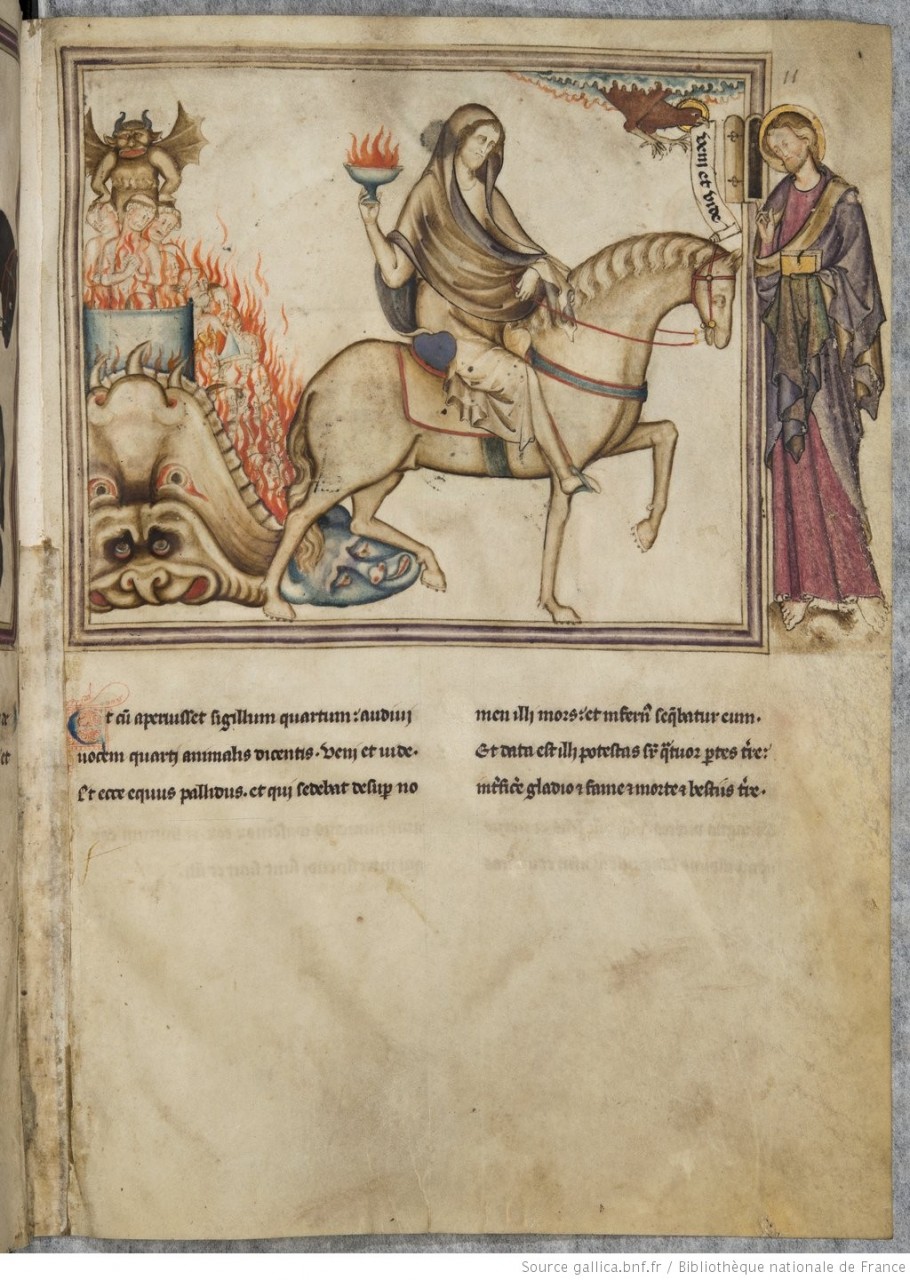 11
veni et vide
Et cū aperuisset sigillum quartum: audivi
vocem quarti animalis dicentis. Veni et vide.
Et ecce equus pallidus. et qui sedebat desup no
men illi mors: et infern̄ seq̄batur eum.
Et data est illi potestas sr̄ q̄tuor ptes tr̄e:
int̄fic̄e gladio ⁊ fame ⁊ morte ⁊ bestiis tr̄e.
Source gallica.bnf.fr / Bibliothèque nationale de France